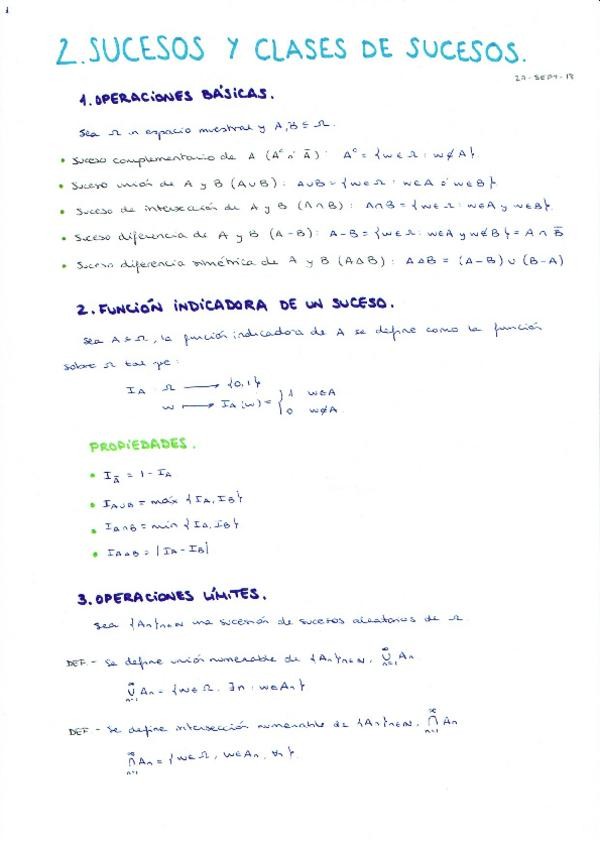 2. SUCESOS Y CLASES DE SUCESOS.
27-SEPT-18
1. OPERACIONES BÁSICAS.
Sea Ω un espacio muestral y A,B ⊆ Ω.
• Suceso complementario de A (Aᶜ ó Ā): Aᶜ = {w ∈ Ω : w ∉ A}
• Suceso unión de A y B (A∪B): A∪B = {w ∈ Ω : w∈A ó w∈B}
• Suceso de intersección de A y B (A∩B): A∩B = {w ∈ Ω : w∈A y w∈B}
• Suceso diferencia de A y B (A-B): A-B = {w ∈ Ω : w∈A y w∉B} = A ∩ B̄
• Suceso diferencia simétrica de A y B (A∆B): A∆B = (A-B) ∪ (B-A)
2. FUNCIÓN INDICADORA DE UN SUCESO.
Sea A ⊆ Ω, la función indicadora de A se define como la función
sobre Ω tal que:
I_A : Ω ⟶ {0,1}
w ⟼ I_A(w) = { 1 w∈A
0 w∉A
PROPIEDADES.
• I_Ā = 1 - I_A
• I_A∪B = máx {I_A, I_B}
• I_A∩B = min {I_A, I_B}
• I_A∆B = |I_A - I_B|
3. OPERACIONES LÍMITES.
Sea {An}n∈N una sucesión de sucesos aleatorios de Ω.
DEF.- Se define unión numerable de {An}n∈N, ∞∪n=1 An
∞∪n=1 An = {w∈Ω, ∃n : w∈An}
DEF - Se define intersección numerable de {An}n∈N, ∞∩n=1 An
∞∩n=1 An = {w∈Ω, w∈An, ∀n}.